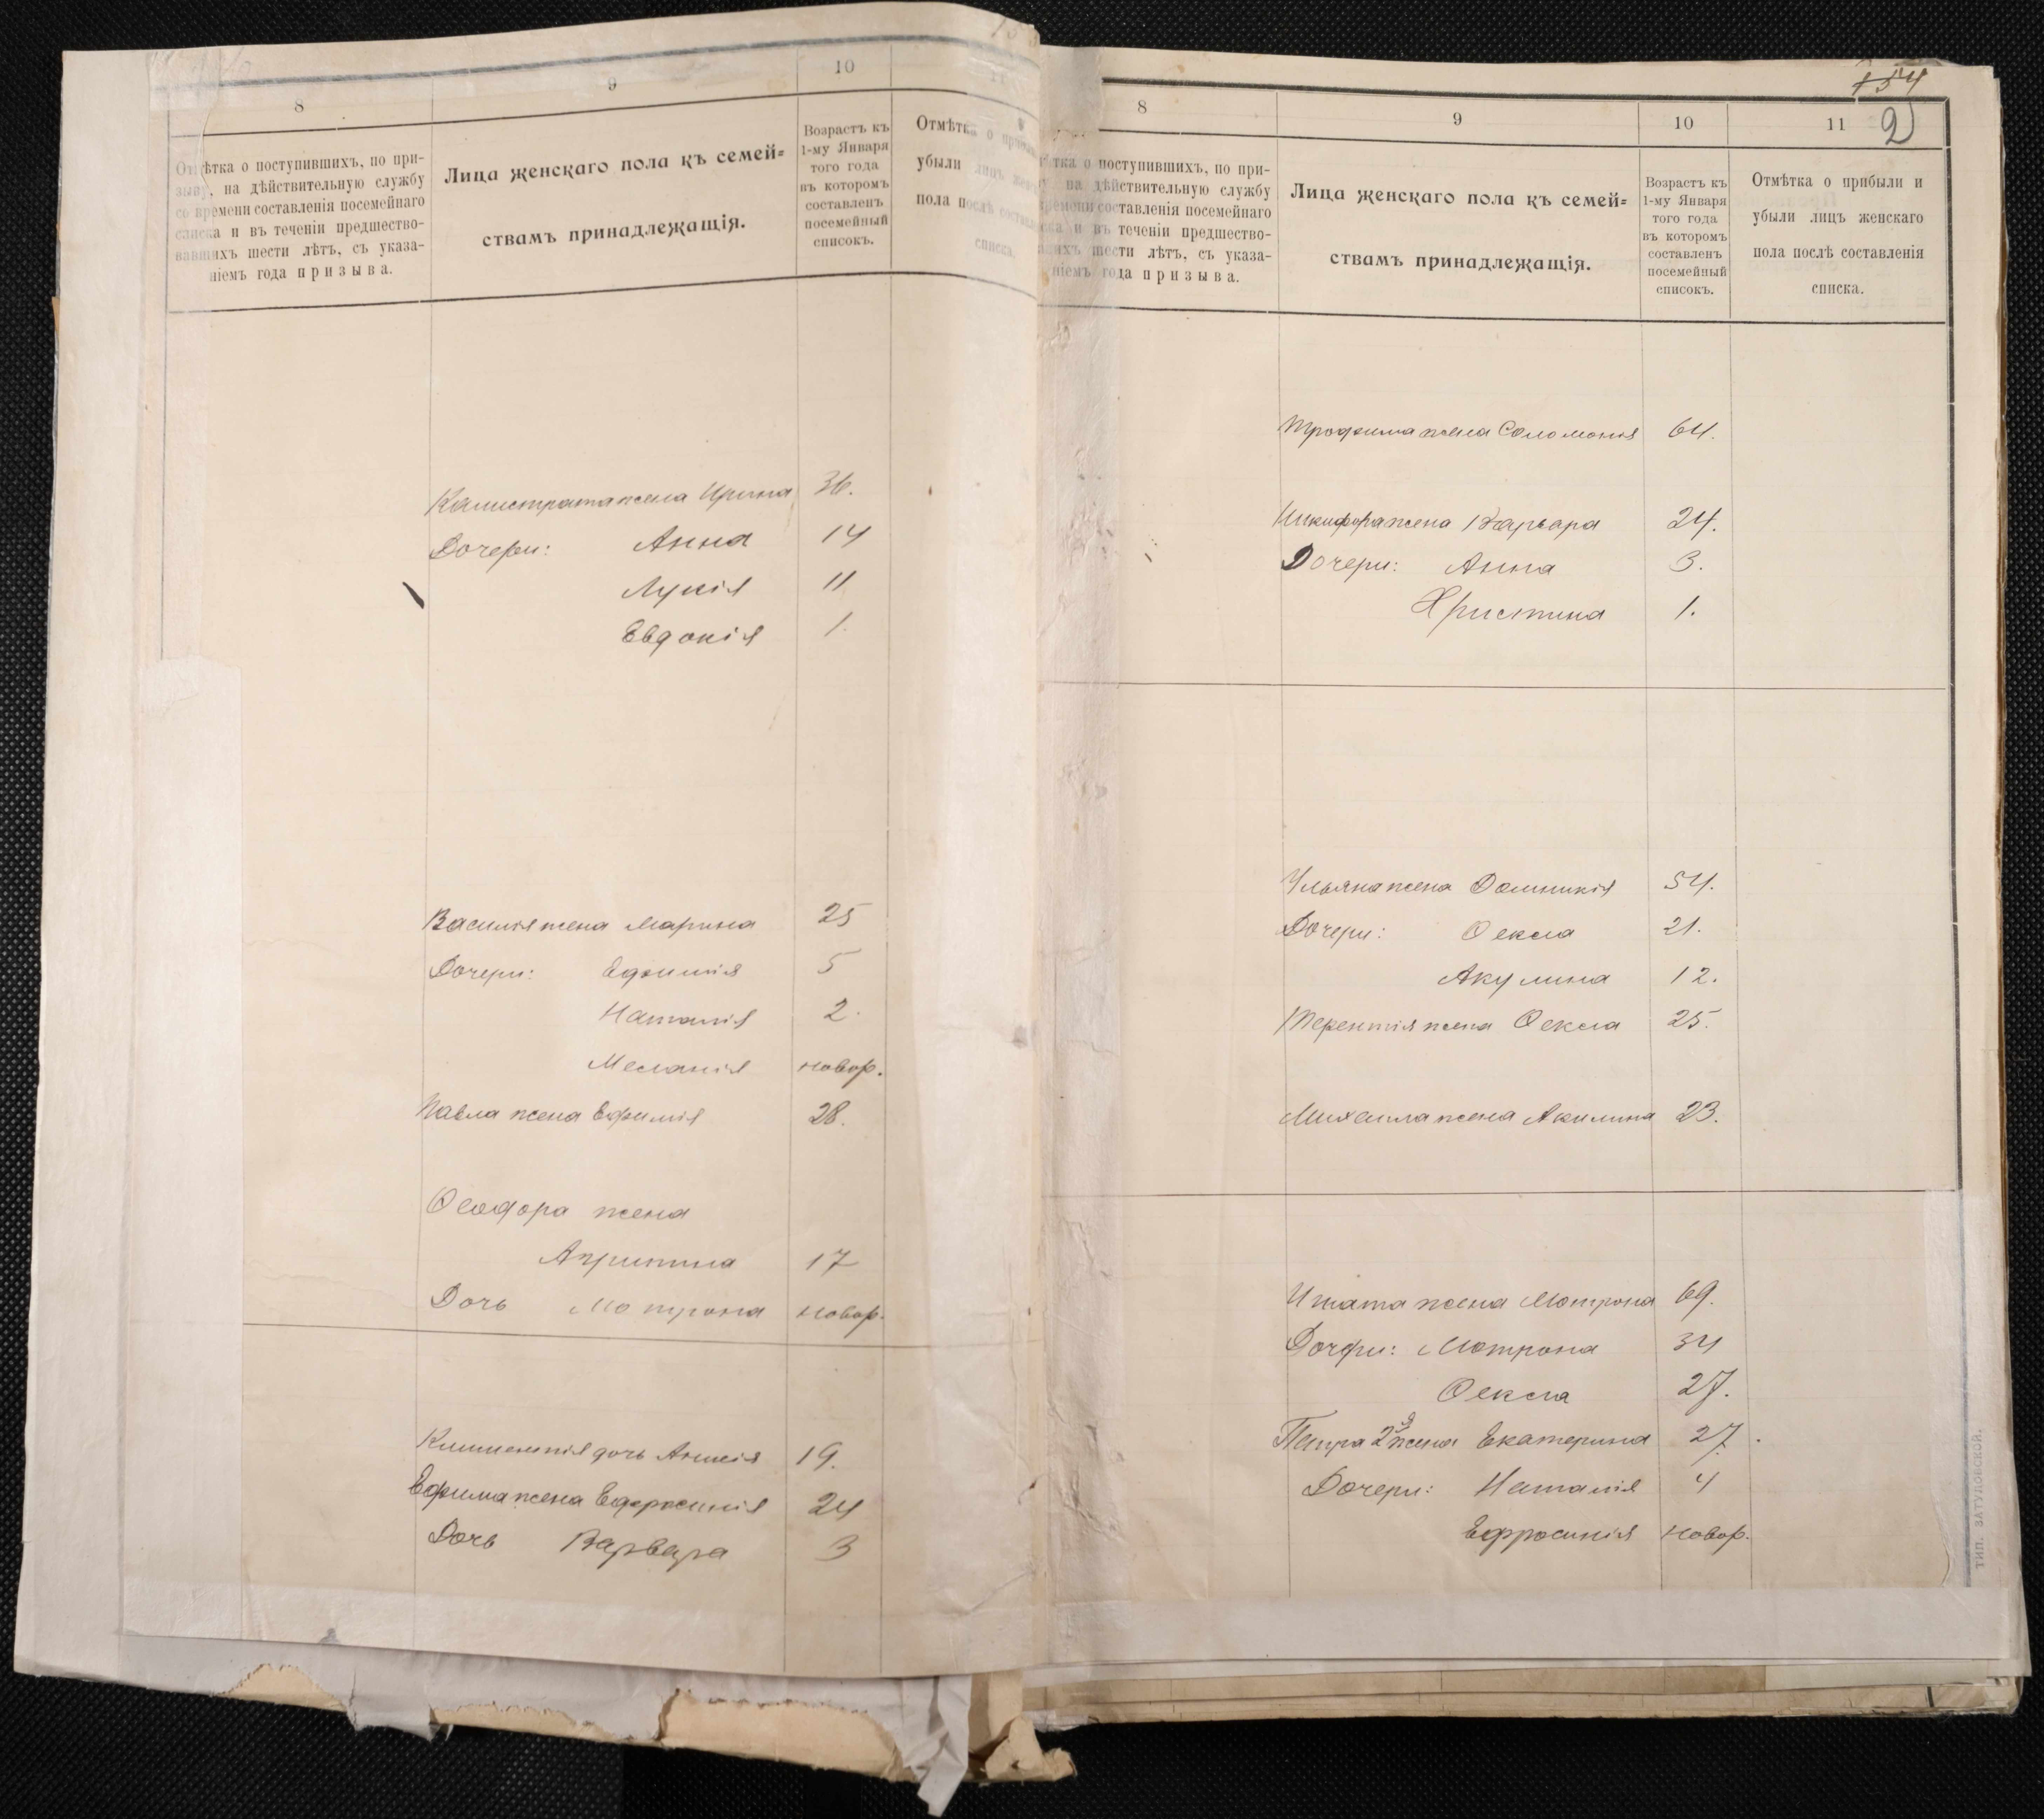 8
9
10
Отмѣтка о поступившихъ, по при-
зыву, на дѣйствительную службу
со времени составленія посемейнаго
списка и въ теченіи предшество-
вавшихъ шести лѣтъ, съ указа-
ніемъ года призыва.
Лица женскаго пола къ семей=
ствамъ принадлежащія.
Возрастъ къ
1-му Января
того года
въ которомъ
составленъ
посемейный
списокъ.
Отмѣтка о
убыли
пола
Калистрата жена Ирина 36.
Дочери: Анна 14
Лукія 11
Евдокія 1.
Василія жена Марина 25
Дочери: Ефимія 5
Наталія 2.
Меланія новор.
Павла жена Ефимія 28.
Ѳеодора жена
Агрипина 17
Дочь Мотрона новор.
Климентія дочь 19.
Ефима жена Ефросинія 24
Дочь Варвара 3
154
2
8
9
10
11
отмѣтка о поступившихъ, по при-
зыву, на дѣйствительную службу
со времени составленія посемейнаго
списка и въ теченіи предшество-
вавшихъ шести лѣтъ, съ указа-
ніемъ года призыва.
Лица женскаго пола къ семей=
ствамъ принадлежащія.
Возрастъ къ
1-му Января
того года
въ которомъ
составленъ
посемейный
списокъ.
Отмѣтка о прибыли и
убыли лицъ женскаго
пола послѣ составленія
списка.
Трофима жена Соломонія 64.
Никифора жена Варвара 24.
Дочери: Анна 3.
Христина 1.
Ульяна жена Домникія 54.
Дочери: Ѳекла 21.
Акулина 12.
Терентія жена Ѳекла 25.
Михаила жена Акилина 23.
Игната жена Мотрона 69.
Дочери: Мотрона 34
Ѳекла 27.
Петра 2я жена Екатерина 27.
Дочери: Наталія 4
Ефросинія новор.
ТИП. ЗАТУЛОВСКОЙ.